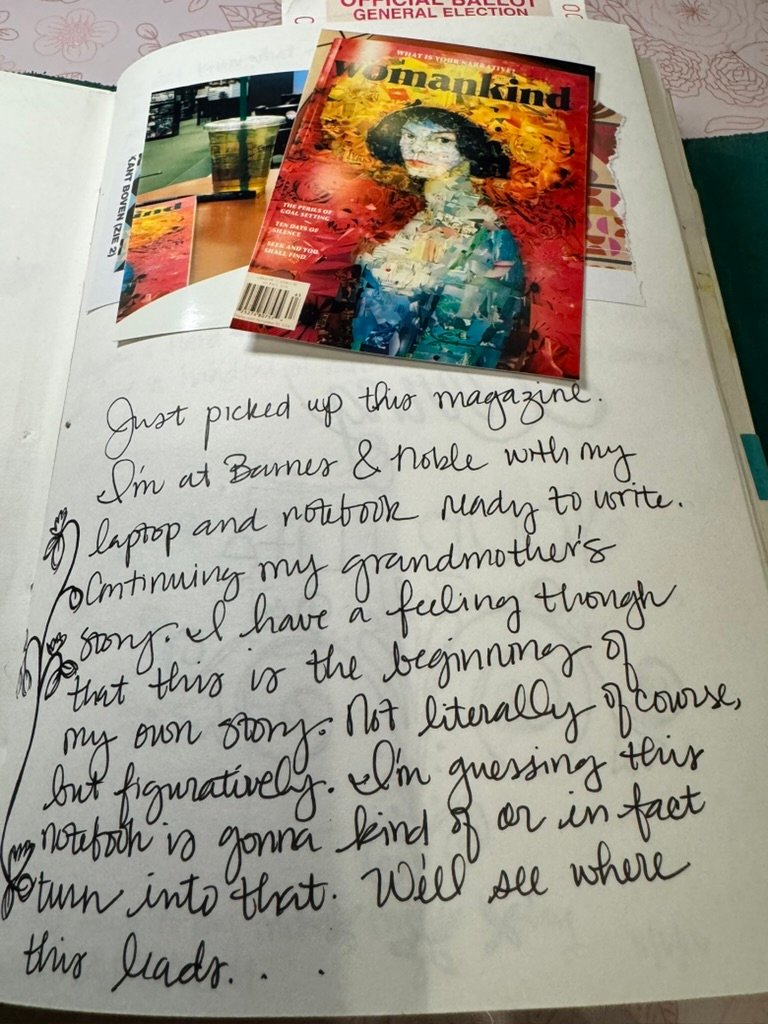 OFFICIAL BALLOT
GENERAL ELECTION
WHAT IS YOUR NARRATIVE?
womankind
THE PERILS OF
GOAL SETTING
TEN DAYS OF
SILENCE
SEEK AND YOU
SHALL FIND
KANT BOVEN (ZIE 2)
kind
Just picked up this magazine.
I'm at Barnes & Noble with my
laptop and notebook ready to write.
Continuing my grandmother's
story. I have a feeling though
that this is the beginning of
my own story. Not literally of course,
but figuratively. I'm guessing this
notebook is gonna kind of or in fact
turn into that. We'll see where
this leads. . .